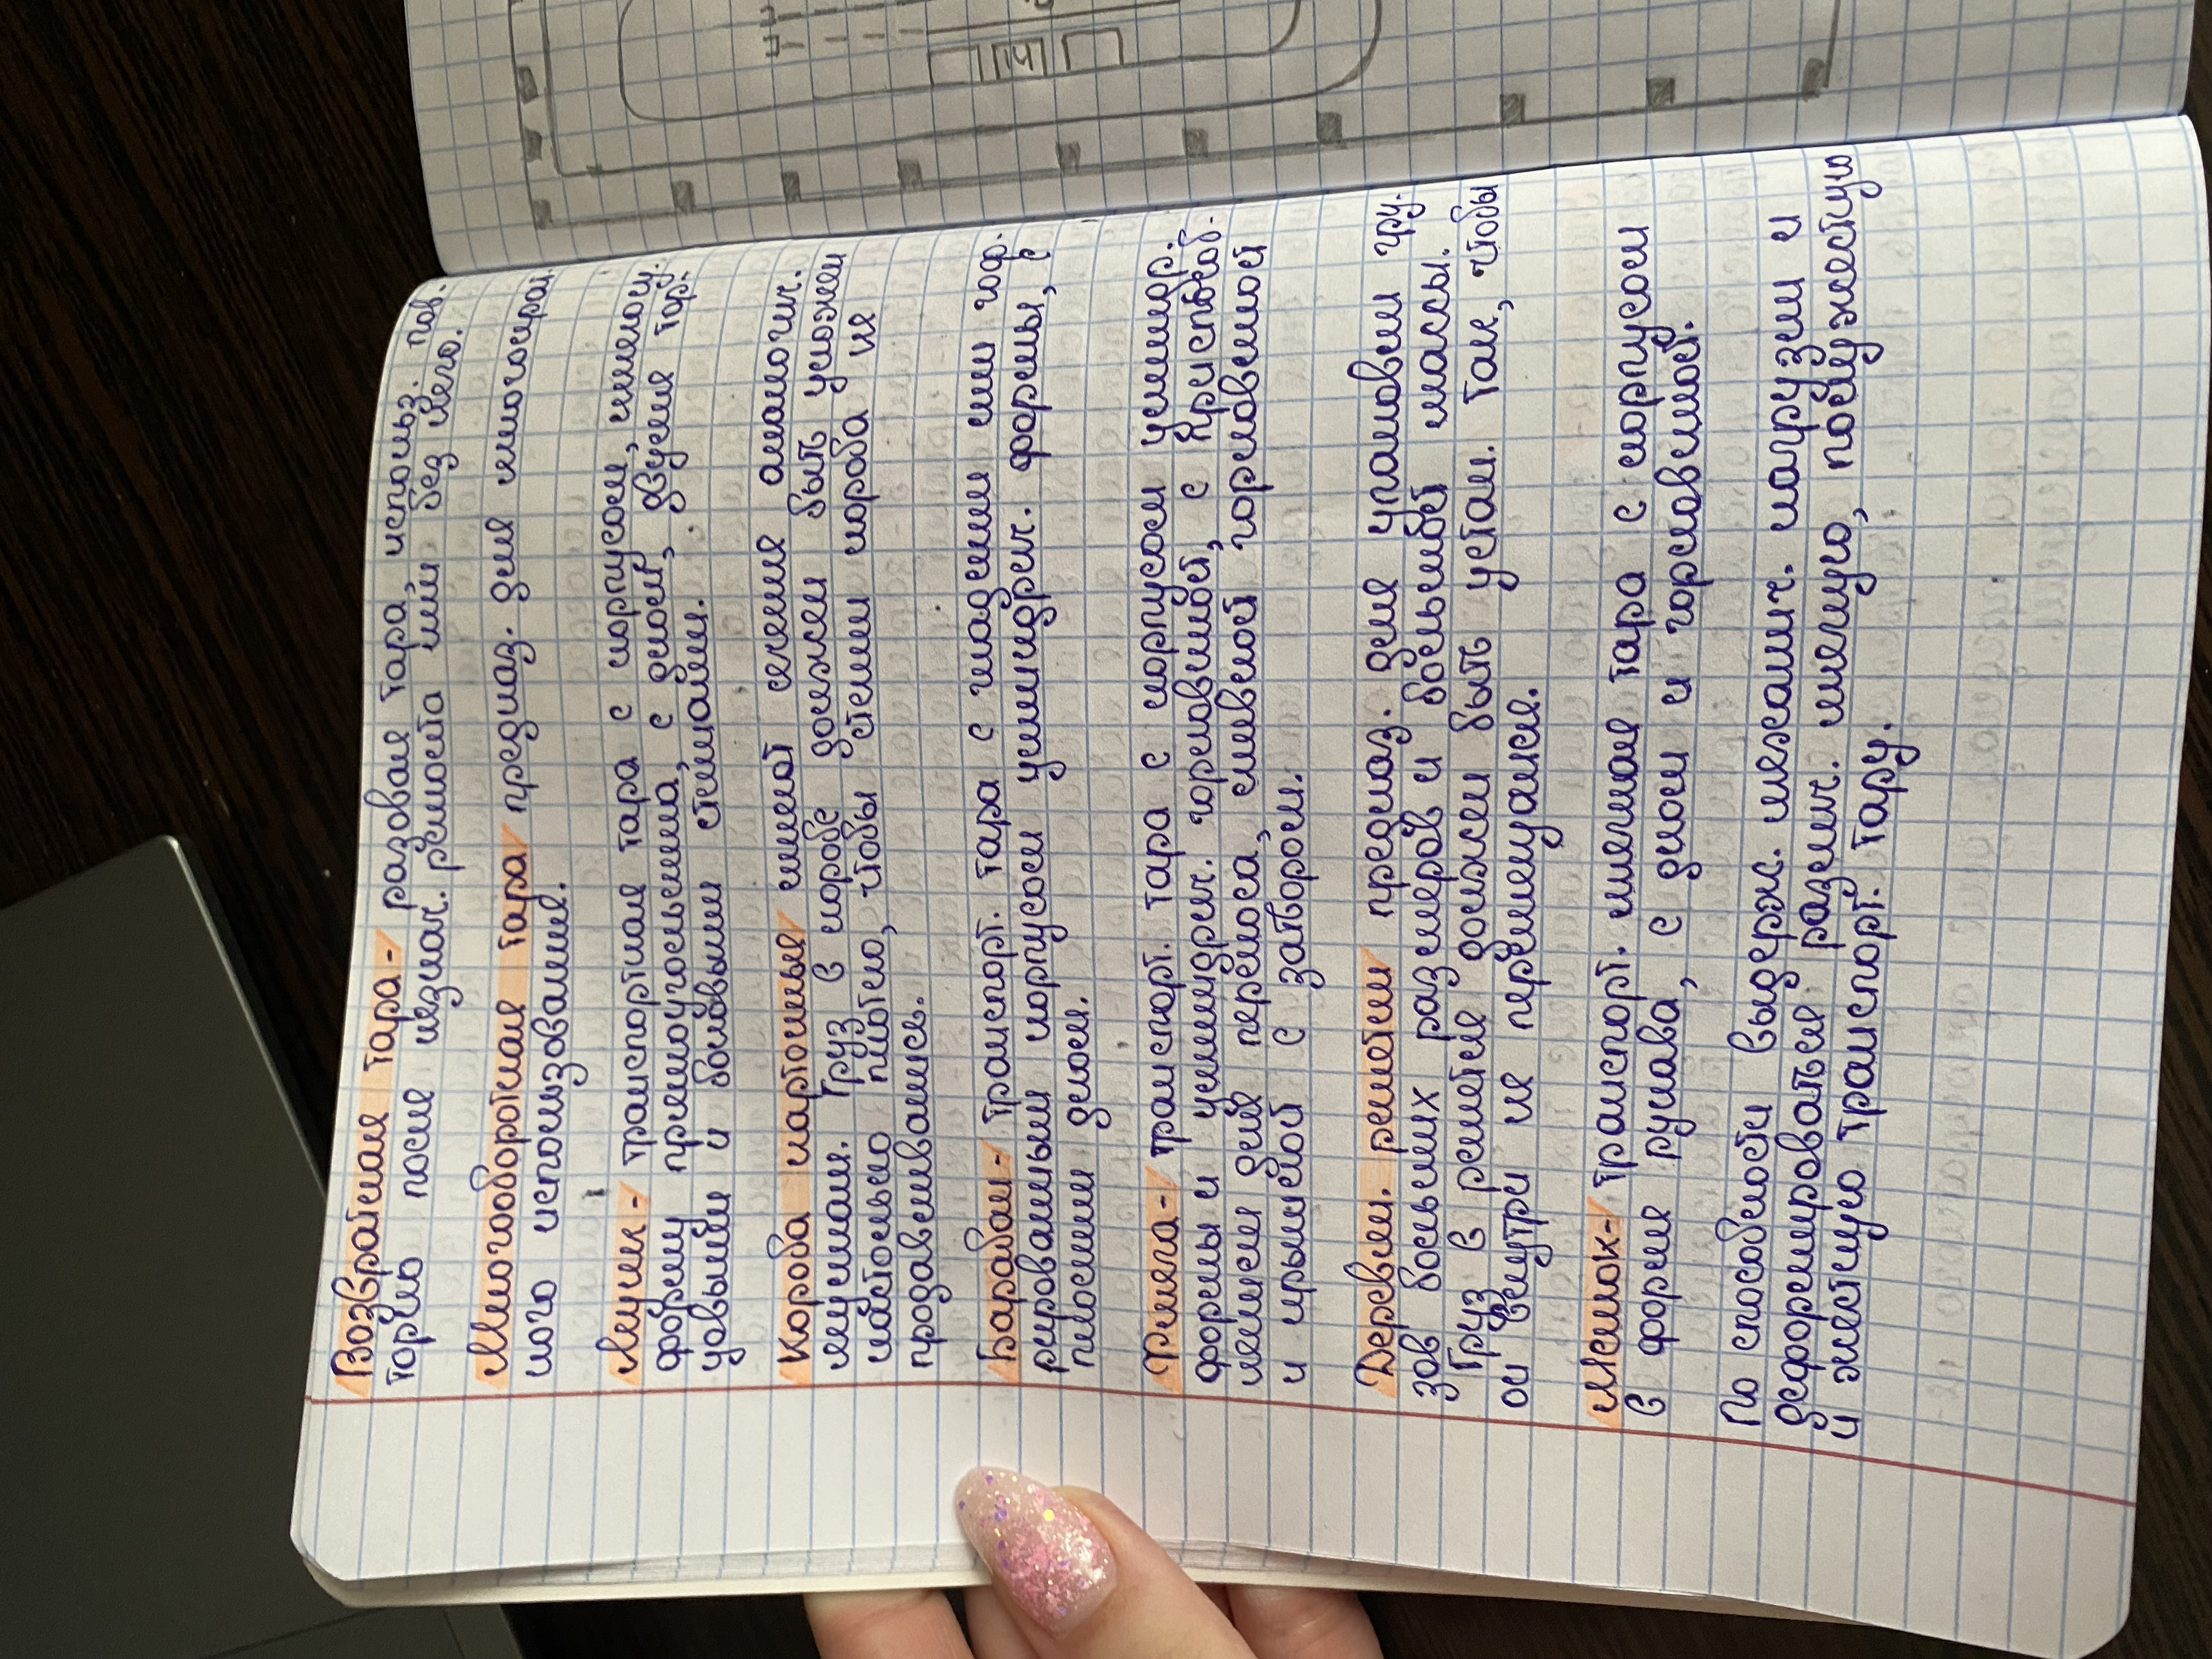 Возвратная тара - разовая тара, использ. пов.
торно после незнач. ремонта или без него.
Многооборотная тара предназ. для многократ.
ного использования.
Ящик - транспортная тара с корпусом, имеющ.
форму прямоугольника, с дном, двумя тор.
цовыми и боковыми стенками.
Короба картонные имеют сечения аналогич.
ящикам. Груз в коробе должен быть уложен
настолько плотно, чтобы стенки короба не
продавливались.
Барабан - транспорт. тара с гладким или гоф.
рированным корпусом цилиндрич. формы, с
плоским дном.
Фляга - транспорт. тара с корпусом цилиндр.
формы и цилиндрич. горловиной, с приспособ.
лением для переноса, сливной горловиной
и крышкой с затвором.
Деревян. решетки предназ. для упаковки гру.
зов больших размеров и небольшой массы.
Груз в решетке должен быть устан. так, чтобы
он внутри не перемещался.
Мешок - транспорт. мягкая тара с корпусом
в форме рукава, с дном и горловиной.
По способности выдерж. механич. нагрузки и
деформироваться различ. мягкую, полужесткую
и жесткую транспорт. тару.